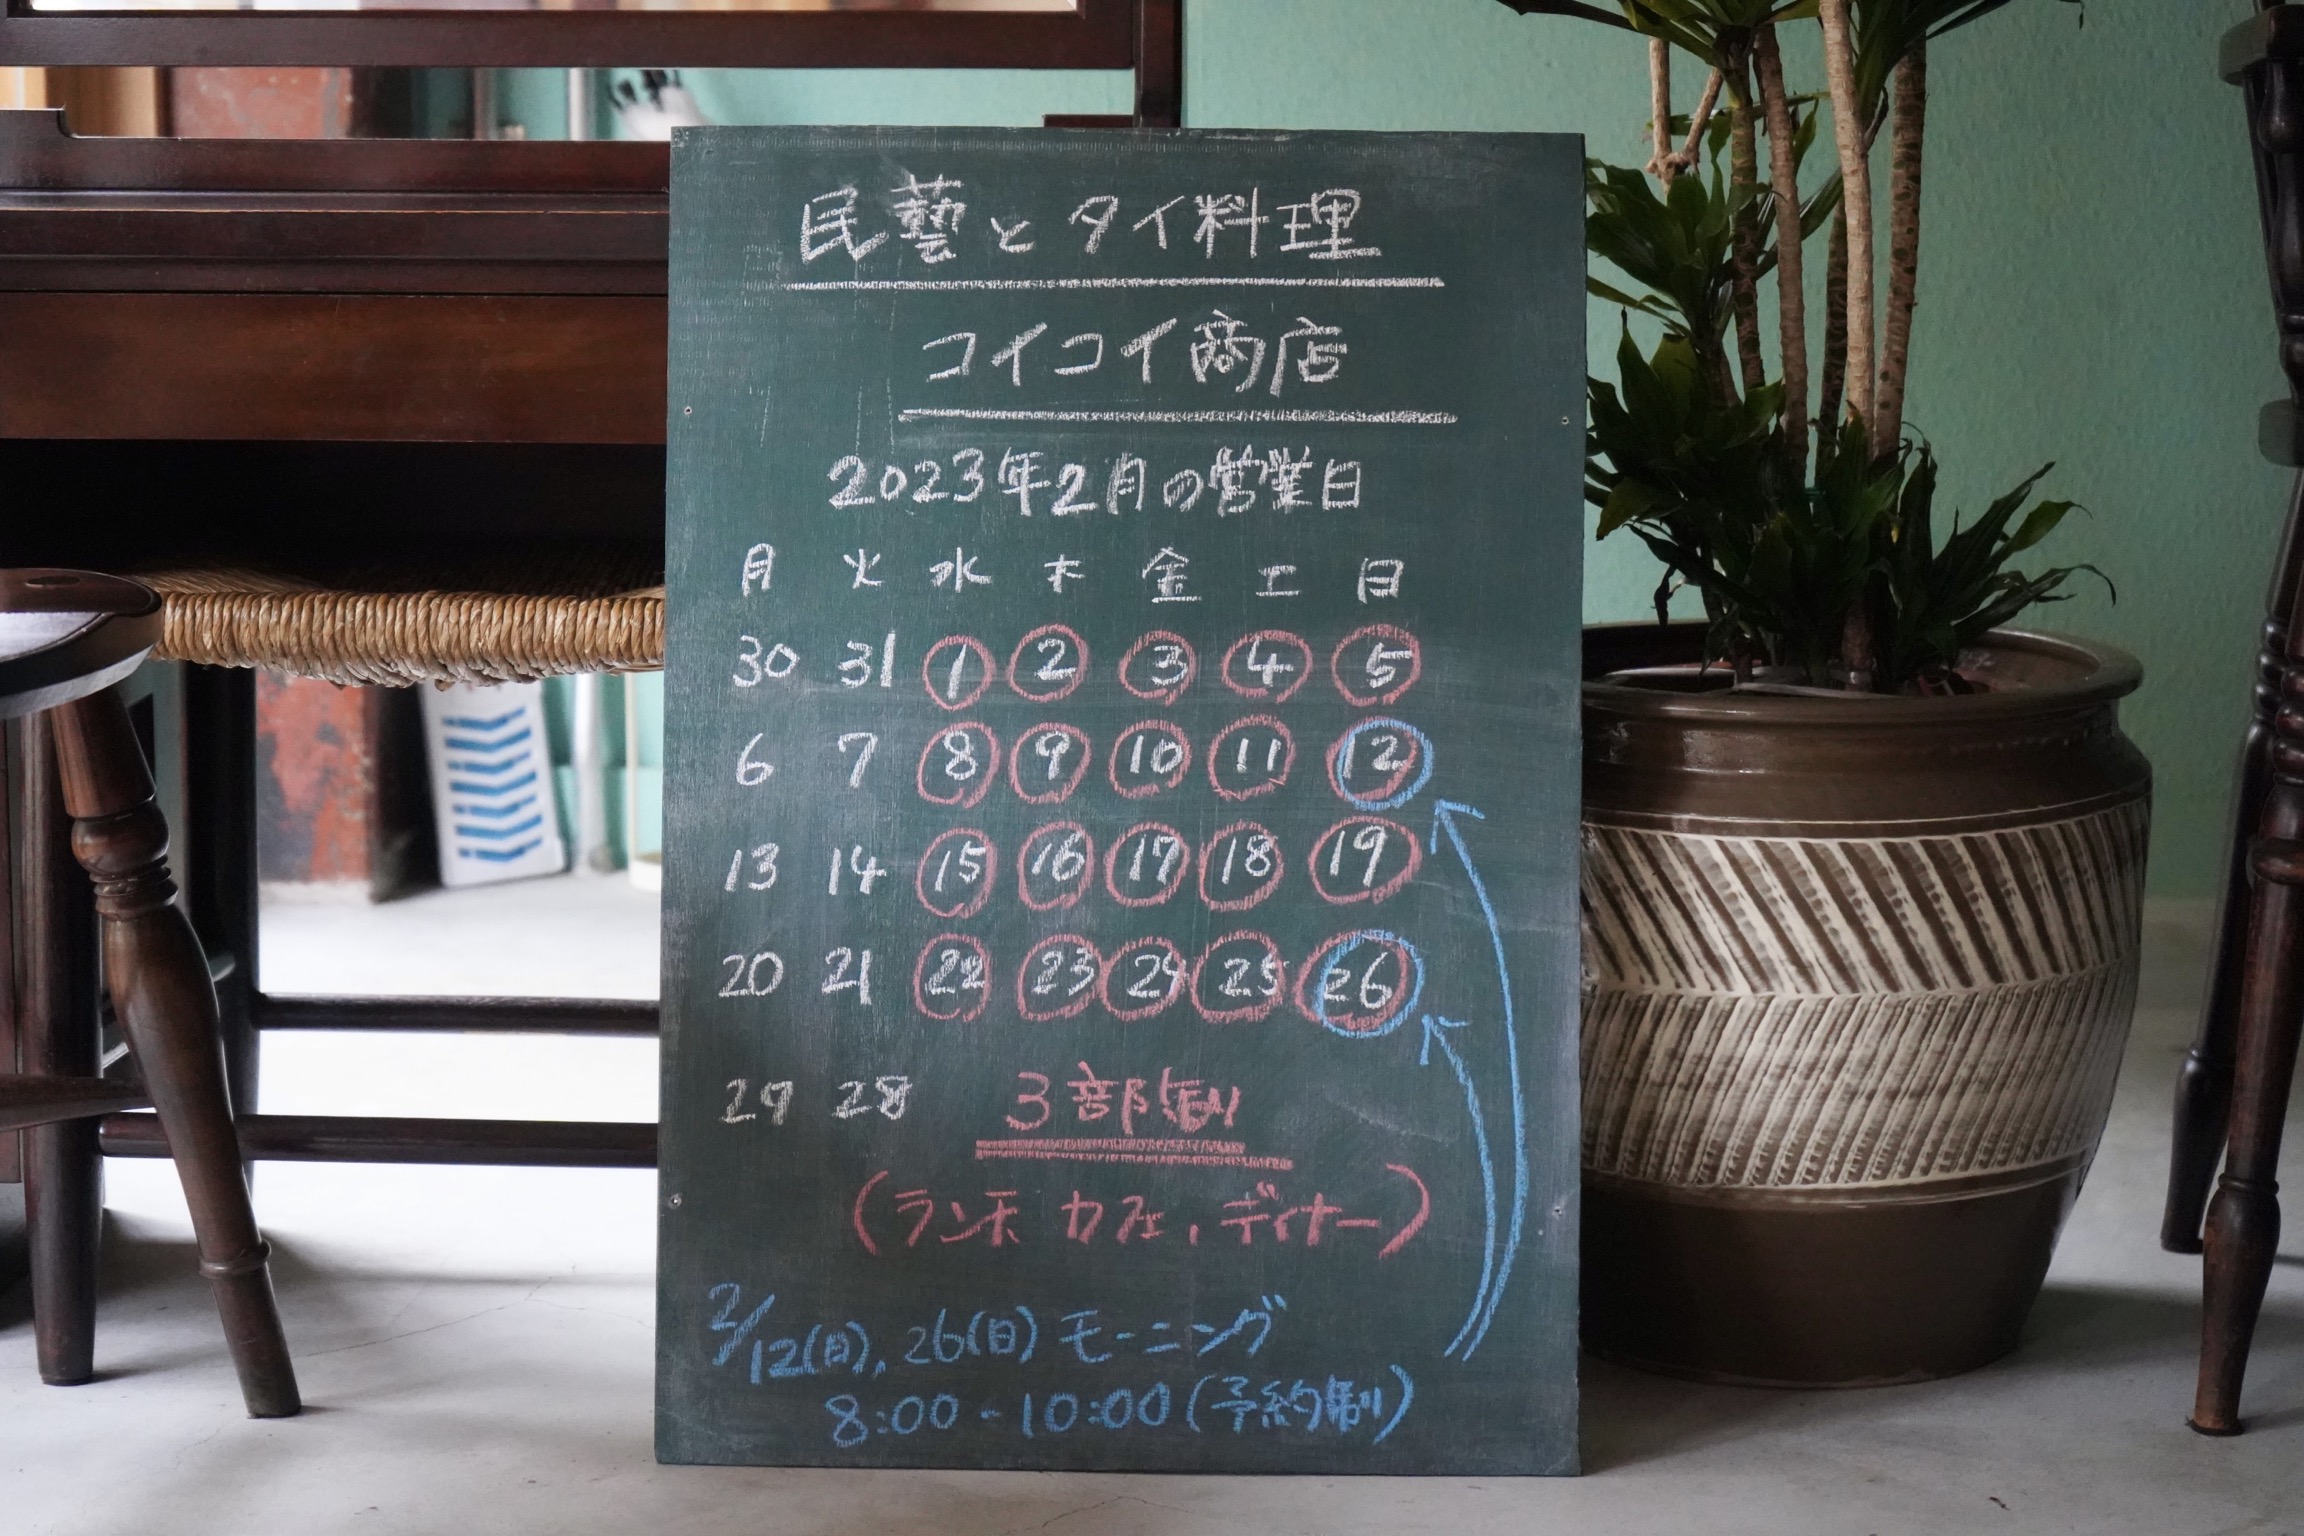 民藝とタイ料理
コイコイ商店
2023年2月の営業日
月 火 水 木 金 土 日
30 31 1 2 3 4 5
6 7 8 9 10 11 12
13 14 15 16 17 18 19
20 21 22 23 24 25 26
29 28 3部制
(ランチ カフェ、ディナー)
2/12(日), 26(日) モーニング
8:00-10:00(予約制)